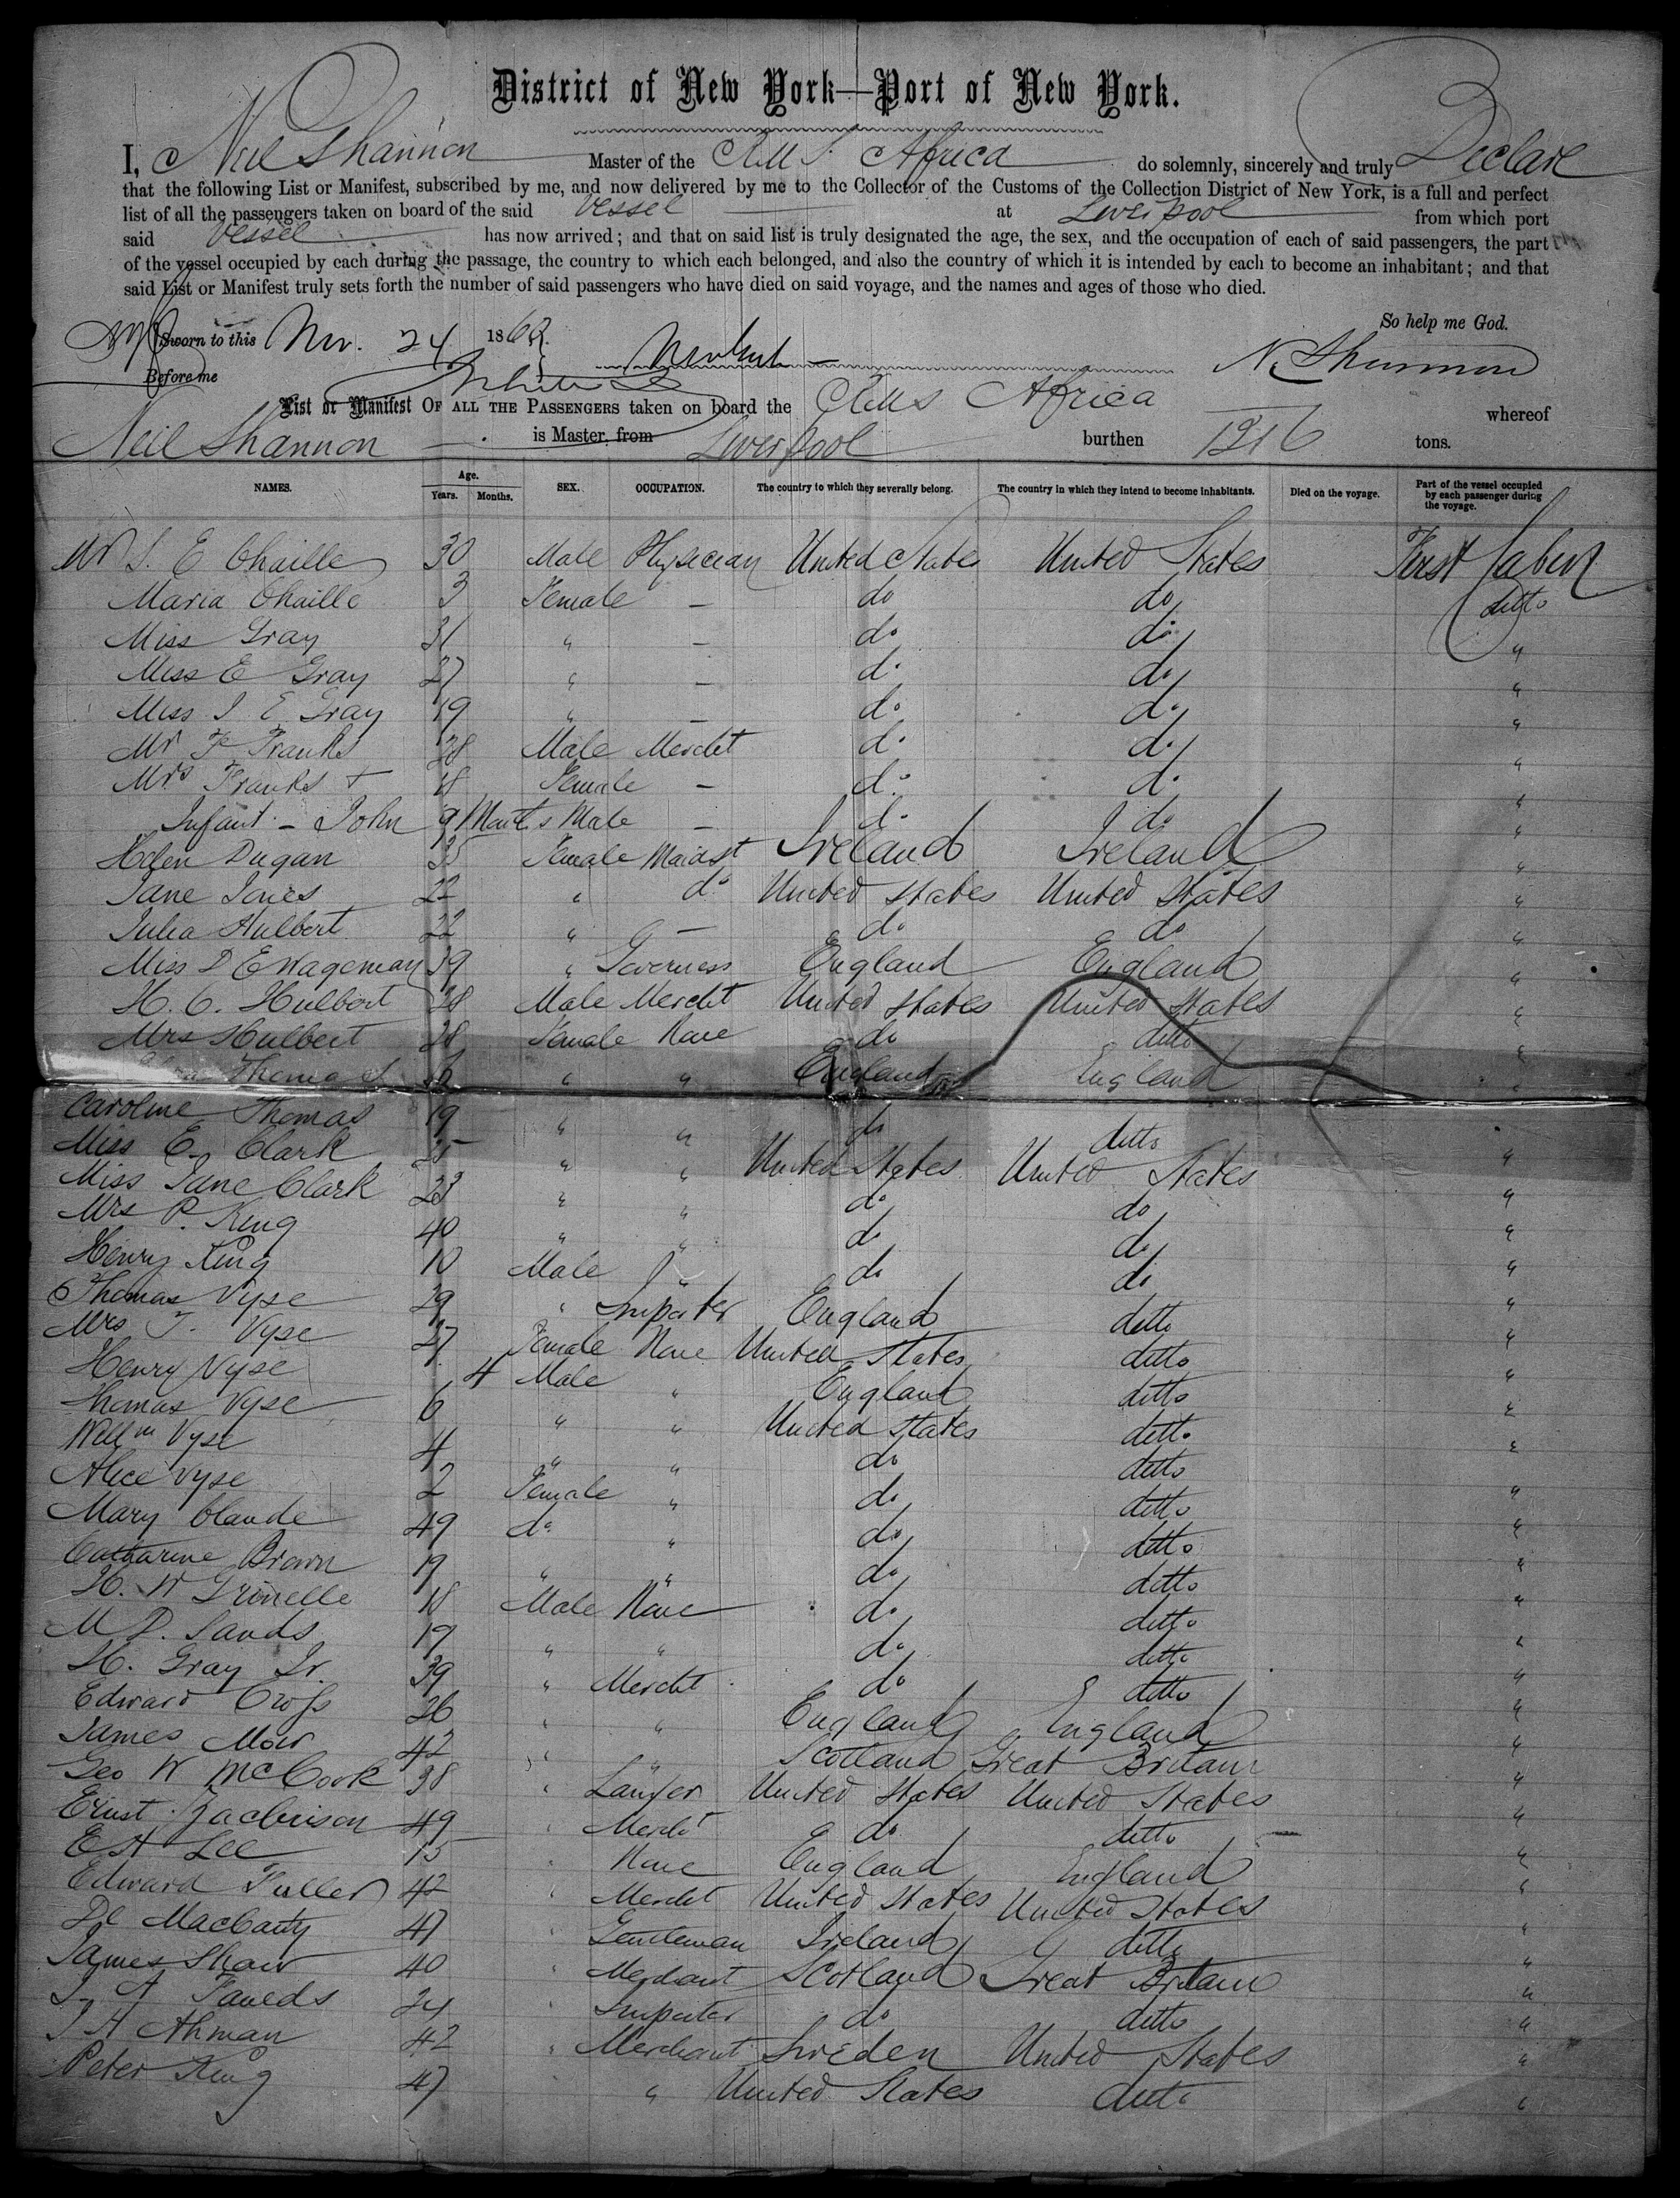 District of New York—Port of New York.
I, Neil Shannon Master of the RMS. Africa do solemnly, sincerely and truly Declare
that the following List or Manifest, subscribed by me, and now delivered by me to the Collector of the Customs of the Collection District of New York, is a full and perfect
list of all the passengers taken on board of the said Vessel at Liverpool from which port
said Vessel has now arrived; and that on said list is truly designated the age, the sex, and the occupation of each of said passengers, the part
of the vessel occupied by each during the passage, the country to which each belonged, and also the country of which it is intended by each to become an inhabitant; and that
said List or Manifest truly sets forth the number of said passengers who have died on said voyage, and the names and ages of those who died.
So help me God.
Sworn to this Nov. 24 186
Before me N. Shannon
List or Manifest OF ALL THE PASSENGERS taken on board the RMS Africa whereof
Neil Shannon is Master, from Liverpool burthen 1316 tons.
NAMES. Age. Years. Months. SEX. OCCUPATION. The country to which they severally belong. The country in which they intend to become inhabitants. Died on the voyage. Part of the vessel occupied by each passenger during the voyage.
Mr S. E Chaille 30 Male Physician United States United States First Cabin
Maria Chaille 3 Female — do do ditto
Miss Gray 31 " — do do "
Miss E Gray 27 " — do do "
Miss J E Gray 19 " — do do "
Mr F Franks 38 Male Mercht do do "
Mrs Franks + 18 Female — do do "
Infant — John 9 Months Male — do do "
Helen Dugan 35 Female Maidst Ireland Ireland "
Jane Jones 22 " do United States United States "
Julia Hulbert 22 " — do do "
Miss D E Wageman 39 " Governess England England "
H. C. Hulbert 38 Male Mercht United States United States "
Mrs Hulbert 28 Female None do ditto "
Thomas " " England England "
Caroline Thomas 19 " " do ditto "
Miss E. Clark 25 " " United States United States "
Miss Jane Clark 23 " " do do "
Mrs P. King 40 " " do do "
Henry King 10 Male " do do "
Thomas Vyse 29 " Importer England ditto "
Mrs T. Vyse 27 Female None United States ditto "
Henry Vyse 4 Male " England ditto "
Thomas Vyse 6 " " United States ditto "
Willm Vyse 4 " " do ditto "
Alice Vyse 2 Female " do ditto "
Mary Claude 49 do " do ditto "
Catharine Brown 19 " " do ditto "
H. W Grinelle 18 Male None do ditto "
M D. Sands 19 " " do ditto "
H. Gray Jr. 39 " Mercht do ditto "
Edward Cross 26 " " England England "
James Moir 42 " " Scotland Great Britain "
Geo W McCook 38 " Lawyer United States United States "
Ernst Zachrison 49 " Mercht do ditto "
E A Lee 15 " None England England "
Edward Fuller 42 " Mercht United States United States "
De MacCarty 47 " Gentleman Ireland ditto "
James Shaw 40 " Merchant Scotland Great Britain "
J. A 24 " Importer do ditto "
J A Ahman 42 " Merchant Sweden United States "
Peter King 47 " " United States ditto "